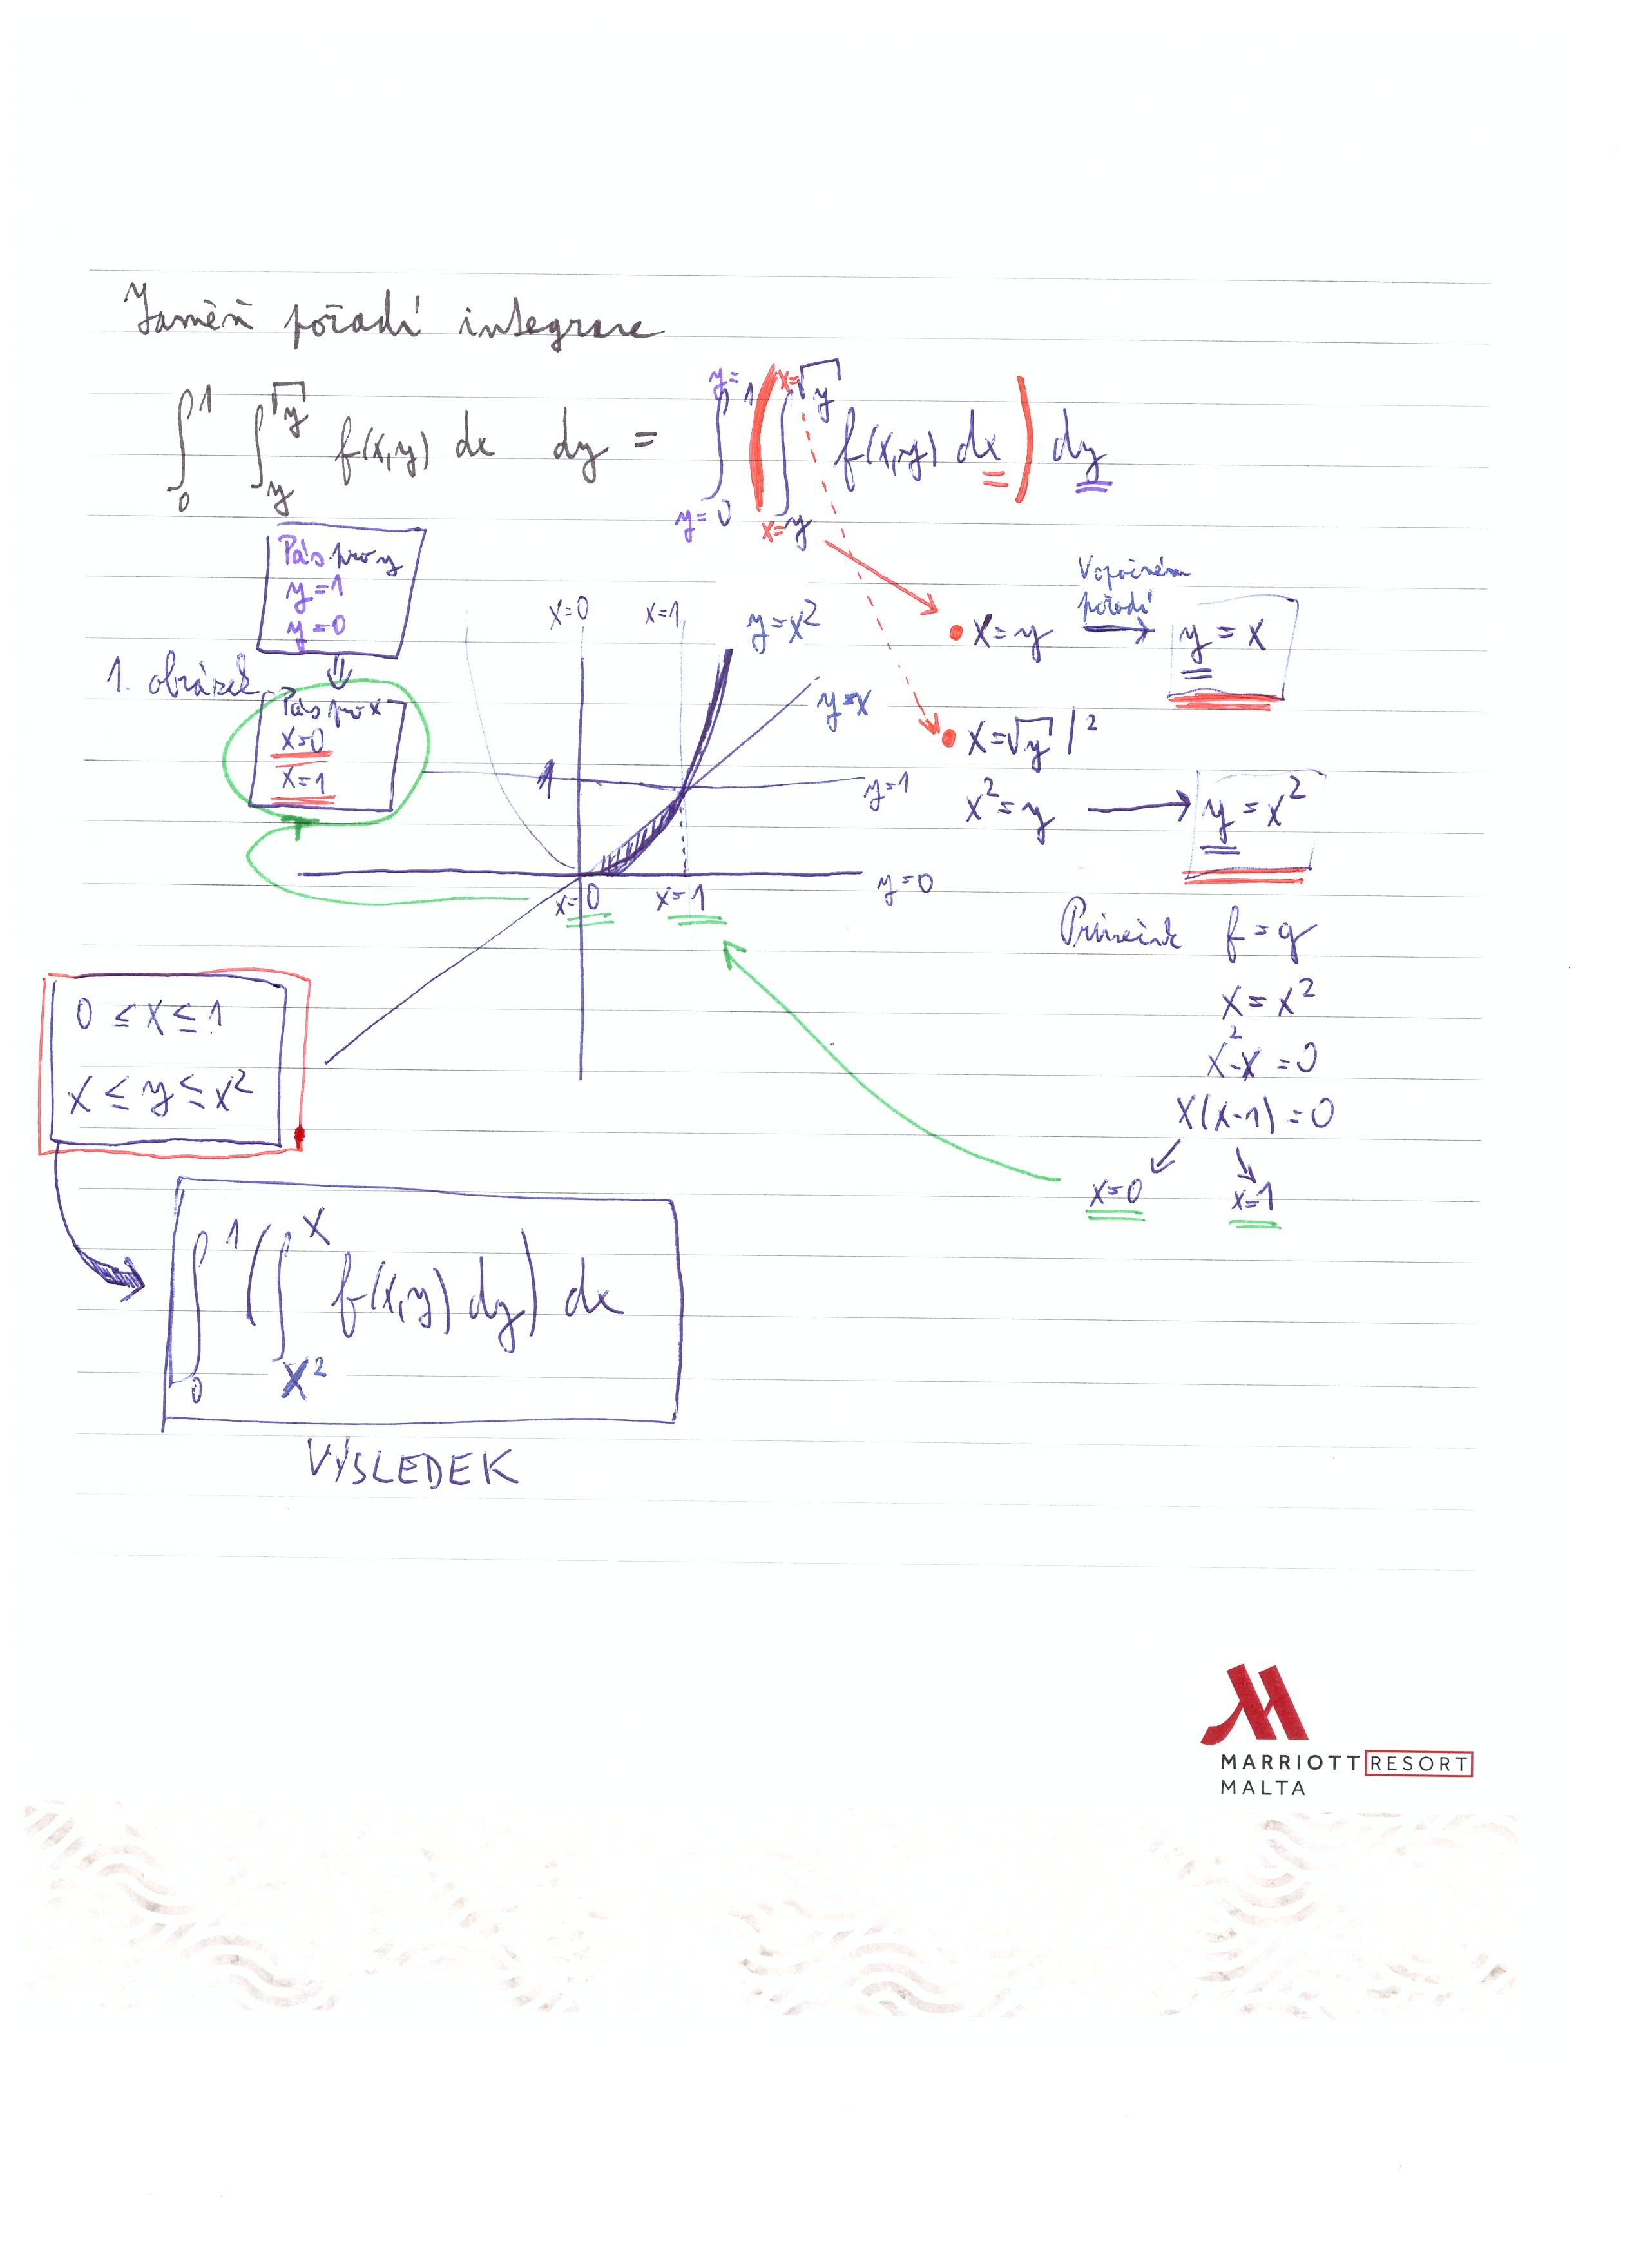 Zaměň pořadí integrace
∫₀¹ ∫_y^√y f(x,y) dx dy = ∫_{y=0}^{y=1} ( ∫_{x=y}^{x=√y} f(x,y) dx ) dy
Pás pro y
y=1
y=0
⇓
1. obrázek
Pás pro x
x=0
x=1
x=0
x=1
y=x²
y=x
1
y=1
y=0
x=0
x=1
• x=y
V opačném
pořadí
→ y = x
• x=√y /²
x²=y → y = x²
Průsečík f=g
x=x²
x²-x=0
x(x-1)=0
x=0 x=1
0 ≤ x ≤ 1
x ≤ y ≤ x²
∫₀¹ ( ∫_{x²}^{x} f(x,y) dy ) dx
VÝSLEDEK
MARRIOTT RESORT
MALTA